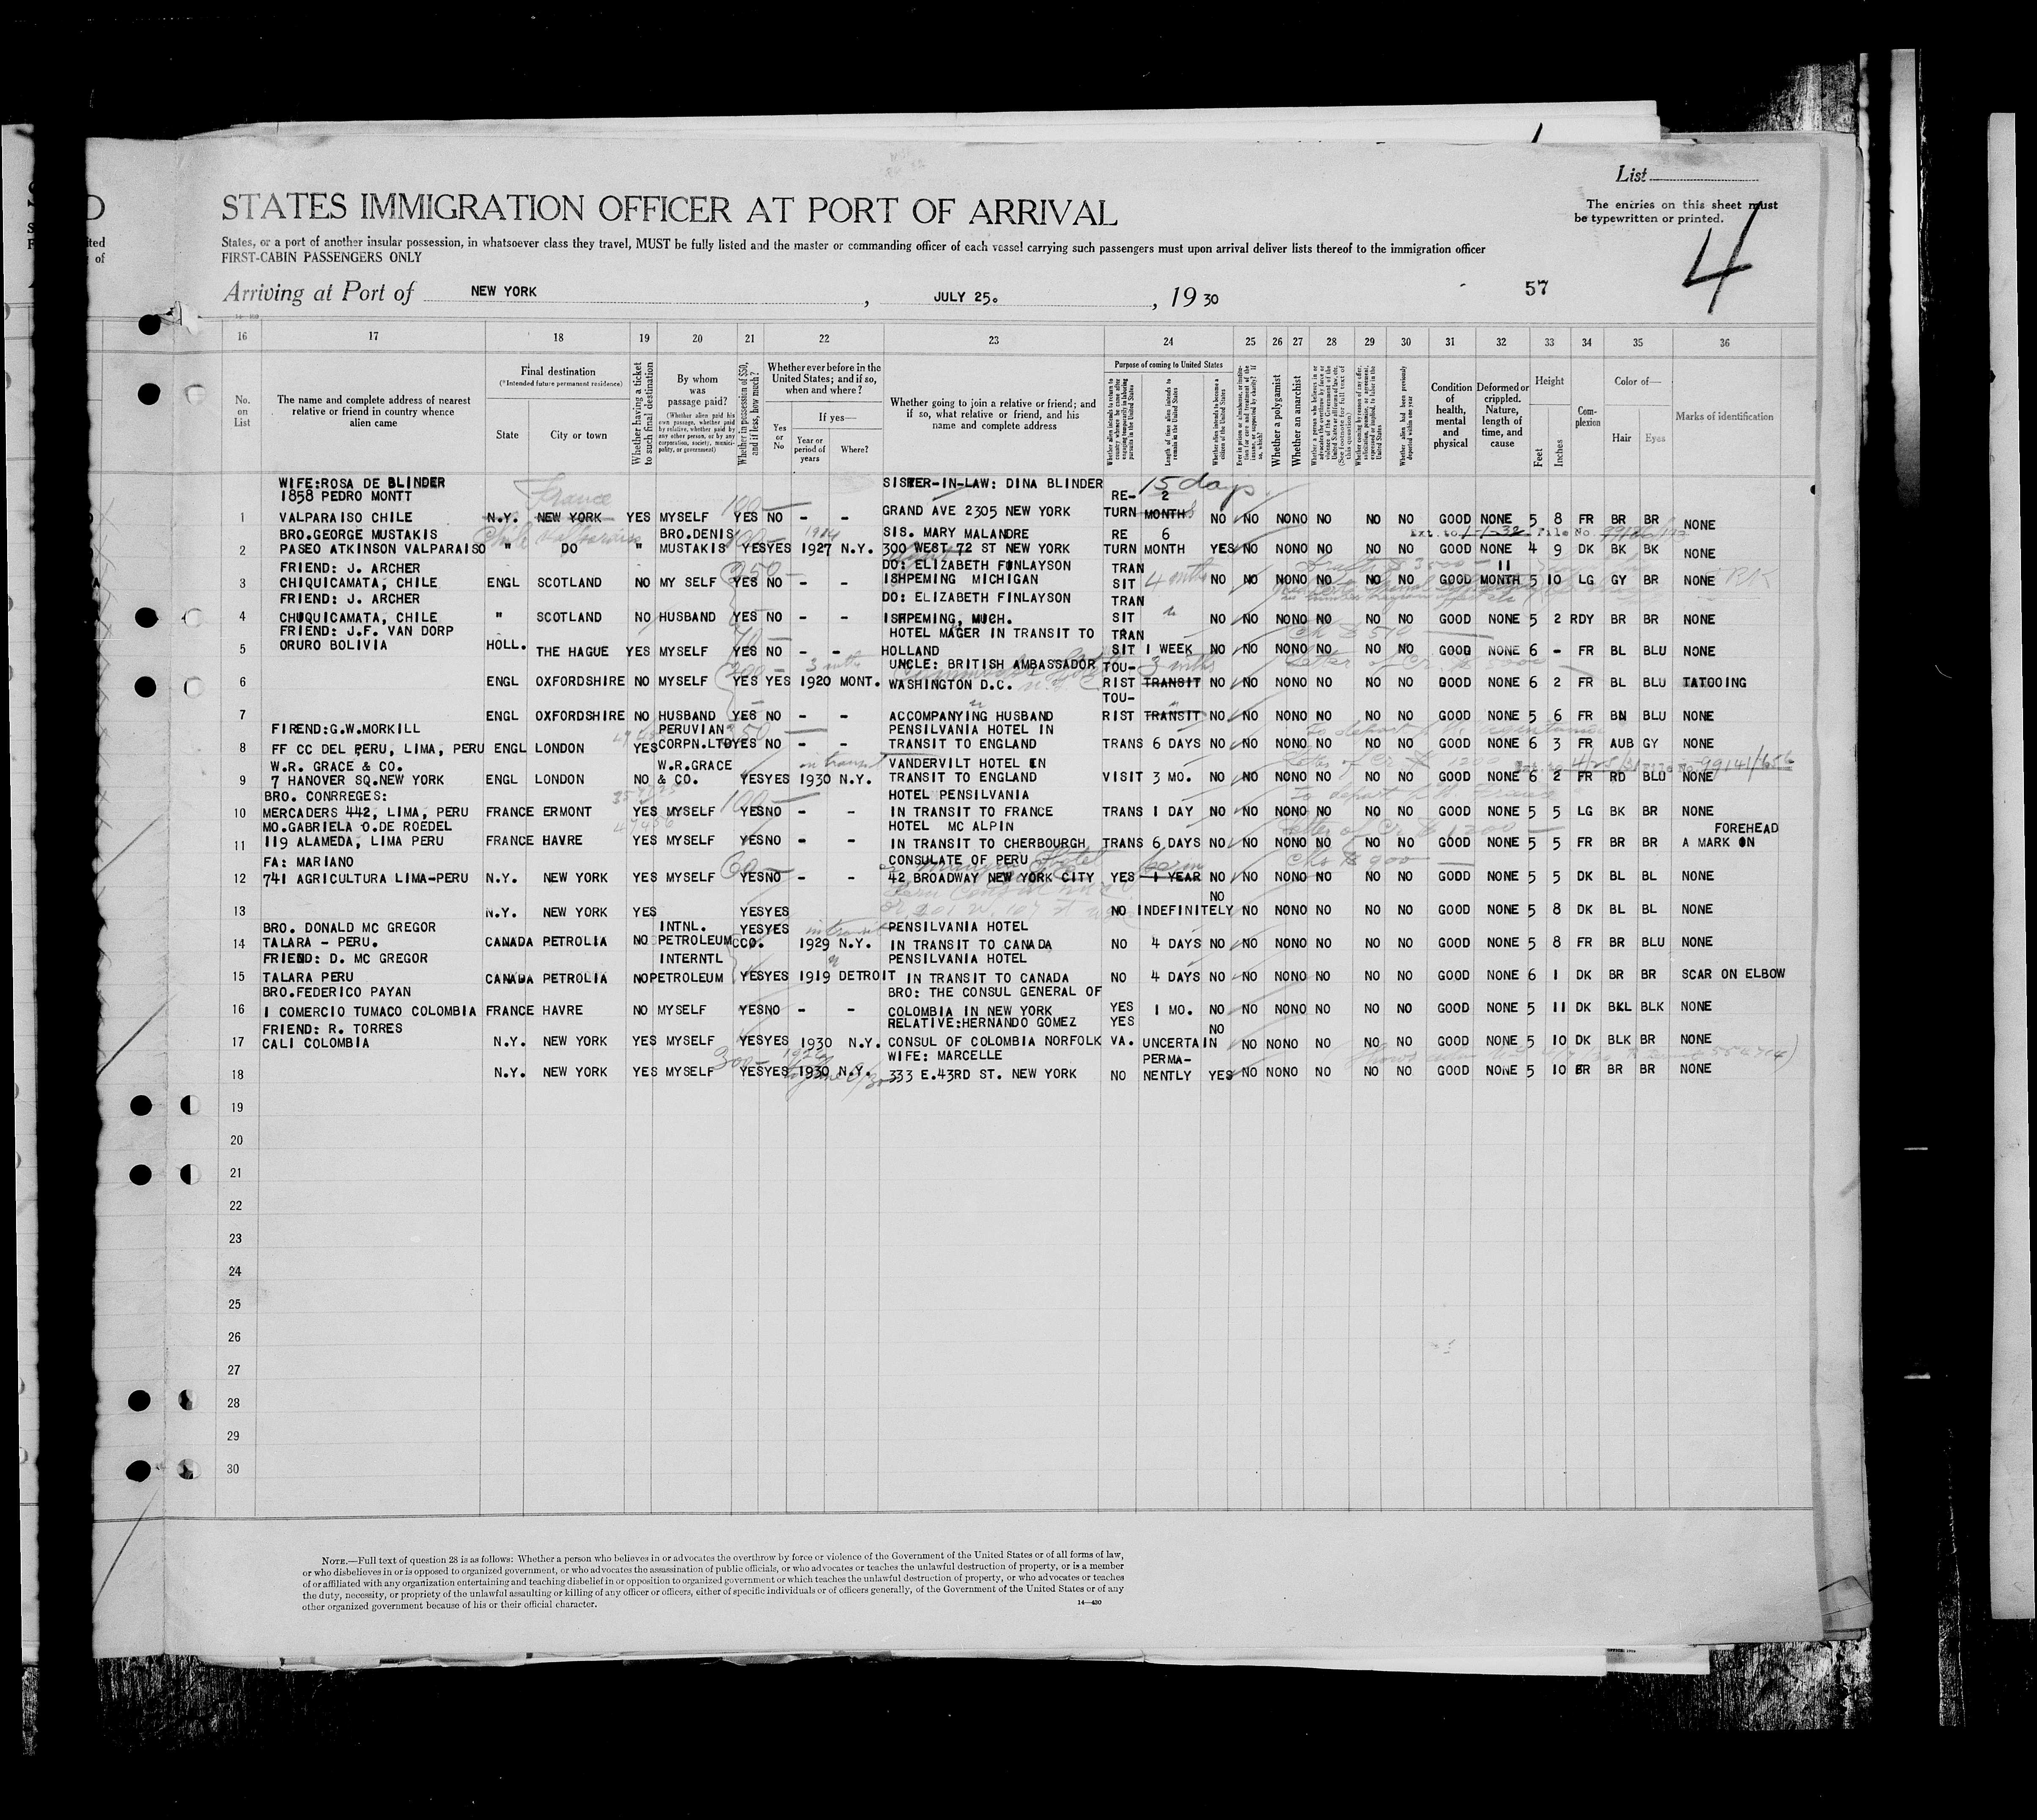 List
STATES IMMIGRATION OFFICER AT PORT OF ARRIVAL
The entries on this sheet must
be typewritten or printed.
4
States, or a port of another insular possession, in whatsoever class they travel, MUST be fully listed and the master or commanding officer of each vessel carrying such passengers must upon arrival deliver lists thereof to the immigration officer
FIRST-CABIN PASSENGERS ONLY
Arriving at Port of NEW YORK, JULY 25. , 19 30
57
16 17 18 19 20 21 22 23 24 25 26 27 28 29 30 31 32 33 34 35 36
No. on List
The name and complete address of nearest relative or friend in country whence alien came
Final destination
(*Intended future permanent residence)
State City or town
Whether having a ticket to such final destination
By whom was passage paid?
(Whether alien paid his own passage, whether paid by relative, whether paid by any other person, or by any corporation, society, municipality, or government)
Whether in possession of $50, and if less, how much?
Whether ever before in the United States; and if so, when and where?
Yes or No
If yes—
Year or period of years Where?
Whether going to join a relative or friend; and if so, what relative or friend, and his name and complete address
Purpose of coming to United States
Length of time alien intends to remain in the United States
Whether alien intends to become a citizen of the United States
Whether a polygamist
Whether an anarchist
Condition of health, mental and physical
Deformed or crippled. Nature, length of time, and cause
Height
Feet Inches
Complexion
Color of—
Hair Eyes
Marks of identification
WIFE:ROSA DE BLINDER SISTER-IN-LAW: DINA BLINDER 15 days
1858 PEDRO MONTT France 100— RE- 2
1 VALPARAISO CHILE N.Y. NEW YORK YES MYSELF YES NO - - GRAND AVE 2305 NEW YORK TURN MONTHS NO NO NONO NO NO NO GOOD NONE 5 8 FR BR BR NONE
BRO.GEORGE MUSTAKIS Chile Valparaiso BRO.DENIS SIS. MARY MALANDRE RE 6 Ext. to 1-1-32 File No.
2 PASEO ATKINSON VALPARAISO " DO " MUSTAKIS YESYES 1927 N.Y. 300 WEST 72 ST NEW YORK TURN MONTH YES NO NONO NO NO NO GOOD NONE 4 9 DK BK BK NONE
FRIEND: J. ARCHER DO: ELIZABETH FINLAYSON TRAN 11
3 CHIQUICAMATA, CHILE ENGL SCOTLAND NO MY SELF YES NO - - ISHPEMING MICHIGAN SIT 4 mths NO NO NONO NO NO NO GOOD MONTH 5 10 LG GY BR NONE
FRIEND: J. ARCHER DO: ELIZABETH FINLAYSON TRAN
4 CHUQUICAMATA, CHILE " SCOTLAND NO HUSBAND YES NO - - ISHPEMING, MUCH. SIT NO NO NONO NO NO NO GOOD NONE 5 2 RDY BR BR NONE
FRIEND: J.F. VAN DORP HOTEL MAGER IN TRANSIT TO TRAN
5 ORURO BOLIVIA HOLL. THE HAGUE YES MYSELF YES NO - - HOLLAND SIT 1 WEEK NO NO NONO NO NO NO GOOD NONE 6 - FR BL BLU NONE
UNCLE: BRITISH AMBASSADOR TOU- 3 mths Letter of Cr. $ 5000—
6 ENGL OXFORDSHIRE NO MYSELF YES YES 1920 MONT. WASHINGTON D.C. RIST TRANSIT NO NO NONO NO NO NO GOOD NONE 6 2 FR BL BLU TATOOING
TOU-
7 ENGL OXFORDSHIRE NO HUSBAND YES NO - - ACCOMPANYING HUSBAND RIST TRANSIT NO NO NONO NO NO NO GOOD NONE 5 6 FR BN BLU NONE
FIREND:G.W.MORKILL PERUVIAN PENSILVANIA HOTEL IN
8 FF CC DEL PERU, LIMA, PERU ENGL LONDON YES CORPN.LTD YES NO - - TRANSIT TO ENGLAND TRANS 6 DAYS NO NO NONO NO NO NO GOOD NONE 6 3 FR AUB GY NONE
W.R. GRACE & CO. W.R.GRACE in transit VANDERVILT HOTEL EN Letter of Cr $ 1200 Ext. to 4/25/31 File No. 99141/656
9 7 HANOVER SQ.NEW YORK ENGL LONDON NO & CO. YESYES 1930 N.Y. TRANSIT TO ENGLAND VISIT 3 MO. NO NO NONO NO NO NO GOOD NONE 6 2 FR RD BLU NONE
BRO. CONRREGES: HOTEL PENSILVANIA
10 MERCADERS 442, LIMA, PERU FRANCE ERMONT YES MYSELF 100— YESNO - - IN TRANSIT TO FRANCE TRANS 1 DAY NO NO NONO NO NO NO GOOD NONE 5 5 LG BK BR NONE
MO.GABRIELA O.DE ROEDEL HOTEL MC ALPIN Letter of Cr $ 1200— FOREHEAD
11 119 ALAMEDA, LIMA PERU FRANCE HAVRE YES MYSELF YESNO - - IN TRANSIT TO CHERBOURGH TRANS 6 DAYS NO NO NONO NO NO NO GOOD NONE 5 5 FR BR BR A MARK ON
FA: MARIANO 60— CONSULATE OF PERU
12 741 AGRICULTURA LIMA-PERU N.Y. NEW YORK YES MYSELF YESNO - - 42 BROADWAY NEW YORK CITY YES 1 YEAR NO NO NONO NO NO NO GOOD NONE 5 5 DK BL BL NONE
NO
13 N.Y. NEW YORK YES YESYES NO INDEFINITELY NO NONO NO NO NO GOOD NONE 5 8 DK BL BL NONE
BRO. DONALD MC GREGOR INTNL. YESYES in transit PENSILVANIA HOTEL
14 TALARA - PERU. CANADA PETROLIA NO PETROLEUM CO. 1929 N.Y. IN TRANSIT TO CANADA NO 4 DAYS NO NO NONO NO NO NO GOOD NONE 5 8 FR BR BLU NONE
FRIEND: D. MC GREGOR INTERNTL PENSILVANIA HOTEL
15 TALARA PERU CANADA PETROLIA NO PETROLEUM YESYES 1919 DETROIT IN TRANSIT TO CANADA NO 4 DAYS NO NO NONO NO NO NO GOOD NONE 6 1 DK BR BR SCAR ON ELBOW
BRO.FEDERICO PAYAN BRO: THE CONSUL GENERAL OF
16 1 COMERCIO TUMACO COLOMBIA FRANCE HAVRE NO MYSELF YESNO - - COLOMBIA IN NEW YORK YES 1 MO. NO NO NONO NO NO NO GOOD NONE 5 11 DK BKL BLK NONE
FRIEND: R. TORRES RELATIVE:HERNANDO GOMEZ YES NO
17 CALI COLOMBIA N.Y. NEW YORK YES MYSELF YESYES 1930 N.Y. CONSUL OF COLOMBIA NORFOLK VA. UNCERTAIN NO NONO NO NO NO GOOD NONE 5 10 DK BLK BR NONE
300— WIFE: MARCELLE PERMA-
18 N.Y. NEW YORK YES MYSELF YESYES 1930 N.Y. 333 E.43RD ST. NEW YORK NO NENTLY YES NO NONO NO NO NO GOOD NONE 5 10 BR BR BR NONE
19
20
21
22
23
24
25
26
27
28
29
30
NOTE.—Full text of question 28 is as follows: Whether a person who believes in or advocates the overthrow by force or violence of the Government of the United States or of all forms of law,
or who disbelieves in or is opposed to organized government, or who advocates the assassination of public officials, or who advocates or teaches the unlawful destruction of property, or is a member
of or affiliated with any organization entertaining and teaching disbelief in or opposition to organized government or which teaches the unlawful destruction of property, or who advocates or teaches
the duty, necessity, or propriety of the unlawful assaulting or killing of any officer or officers, either of specific individuals or of officers generally, of the Government of the United States or of any
other organized government because of his or their official character.
14—430